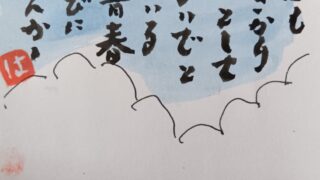 も
かり
として
いでと
いる
青春
びに
んか
は